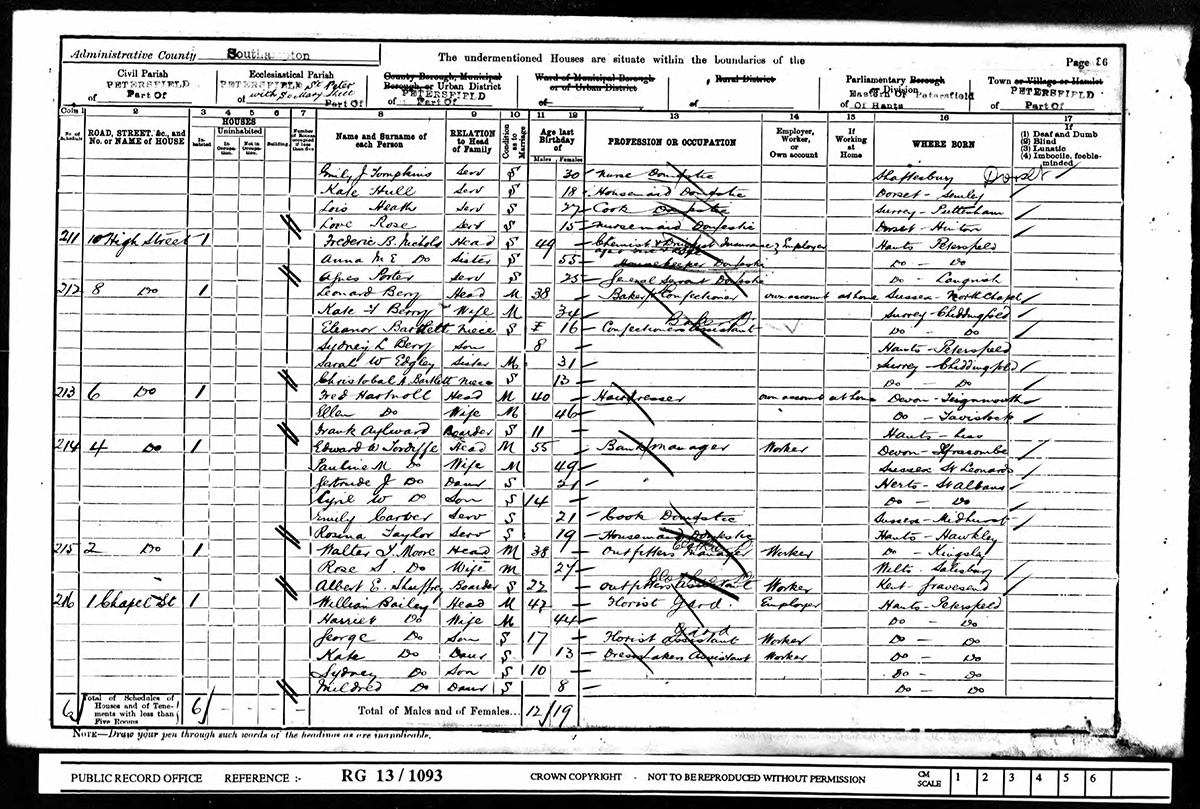 Administrative County Southampton
The undermentioned Houses are situate within the boundaries of the
Page 86
Civil Parish of PETERSFIELD Part Of
Ecclesiastical Parish of PETERSFIELD St Peter with
County Borough, Municipal Borough, or Urban District of PETERSFIELD Part Of
Ward of Municipal Borough or of Urban District of
Rural District of
Parliamentary Borough or Division of Eastern Or Petersfield Of Hants
Town or Village or Hamlet of PETERSFIELD Part Of
Cols 1 2 3 4 5 6 7 8 9 10 11 12 13 14 15 16 17
No. of Schedule
ROAD, STREET, &c., and No. or NAME of HOUSE
HOUSES
Inhabited
Uninhabited
In Occupation
Not in Occupation
Building
Number of Rooms occupied if less than five
Name and Surname of each Person
RELATION to Head of Family
Condition as to Marriage
Age last Birthday of
Males Females
PROFESSION OR OCCUPATION
Employer, Worker, or Own account
If Working at Home
WHERE BORN
If (1) Deaf and Dumb (2) Blind (3) Lunatic (4) Imbecile, feeble-minded
Emily J Tompkins Serv S 30 Nurse Domestic Shaftesbury Dorset
Kate Hull Serv S 18 Housemaid Domestic Dorset -
Lois Heath Serv S 27 Cook Domestic Surrey - Puttenham
Love Rose Serv S 15 Nursemaid Domestic Dorset - Hinton
211 10 High Street 1 Frederic B. Nichols Head S 49 Chemist & Druggist Insurance Employer Hants Petersfield
Anna M E Do Sister S 55 Housekeeper Domestic Do - Do
Agnes Porter Serv S 25 General Servant Domestic Do - Langrish
212 8 Do 1 Leonard Berry Head M 38 Baker & Confectioner own account at home Sussex - North Chapel
Kate F Berry Wife M 34 Surrey - Chiddingfold
Eleanor Bartlett Niece S 16 Confectioners Assistant Do - Do
Sydney L Berry Son 8 Hants - Petersfield
Sarah W Edgley Sister M 31 Surrey - Chiddingfold
Christobal A Bartlett Niece S 13 Do - Do
213 6 Do 1 Fred Hartnoll Head M 40 Hairdresser own account at home Devon - Teignmouth
Ellen Do Wife M 46 Do - Tavistock
Frank Aylward Boarder S 11 Hants - Liss
214 4 Do 1 Edward W Head M 55 Bank manager Worker Devon - Ilfracombe
Pauline M Do Wife M 49 Sussex St Leonards
Gertrude J Do Daur S 21 Herts - St Albans
Cyril W Do Son S 14 Do - Do
Emily Carver Serv S 21 Cook Domestic Sussex - Midhurst
Rosina Taylor Serv S 19 Housemaid Domestic Hants - Hawkley
215 2 Do 1 Walter J. Moore Head M 38 Outfitters manager Worker Do - Kingsley
Rose S. Do Wife M 27 Wilts. Salisbury
Albert E Boarder S 22 Outfitters Assistant Worker Kent Gravesend
216 1 Chapel St 1 William Bailey Head M 42 Florist Gard. Employer Hants - Petersfield
Harriet Do Wife M 44 Do - Do
George Do Son S 17 Florist Assistant Gard Worker Do - Do
Kate Do Daur S 13 Dressmakers Assistant Worker Do - Do
Sydney Do Son S 10 Do - Do
Mildred Do Daur S 8 Do - Do
6 Total of Schedules of Houses and of Tenements with less than Five Rooms 6
Total of Males and of Females... 12 19
NOTE—Draw your pen through such words of the headings as are inapplicable.
PUBLIC RECORD OFFICE REFERENCE :- RG 13 / 1093 CROWN COPYRIGHT - NOT TO BE REPRODUCED WITHOUT PERMISSION
CM SCALE 1 2 3 4 5 6